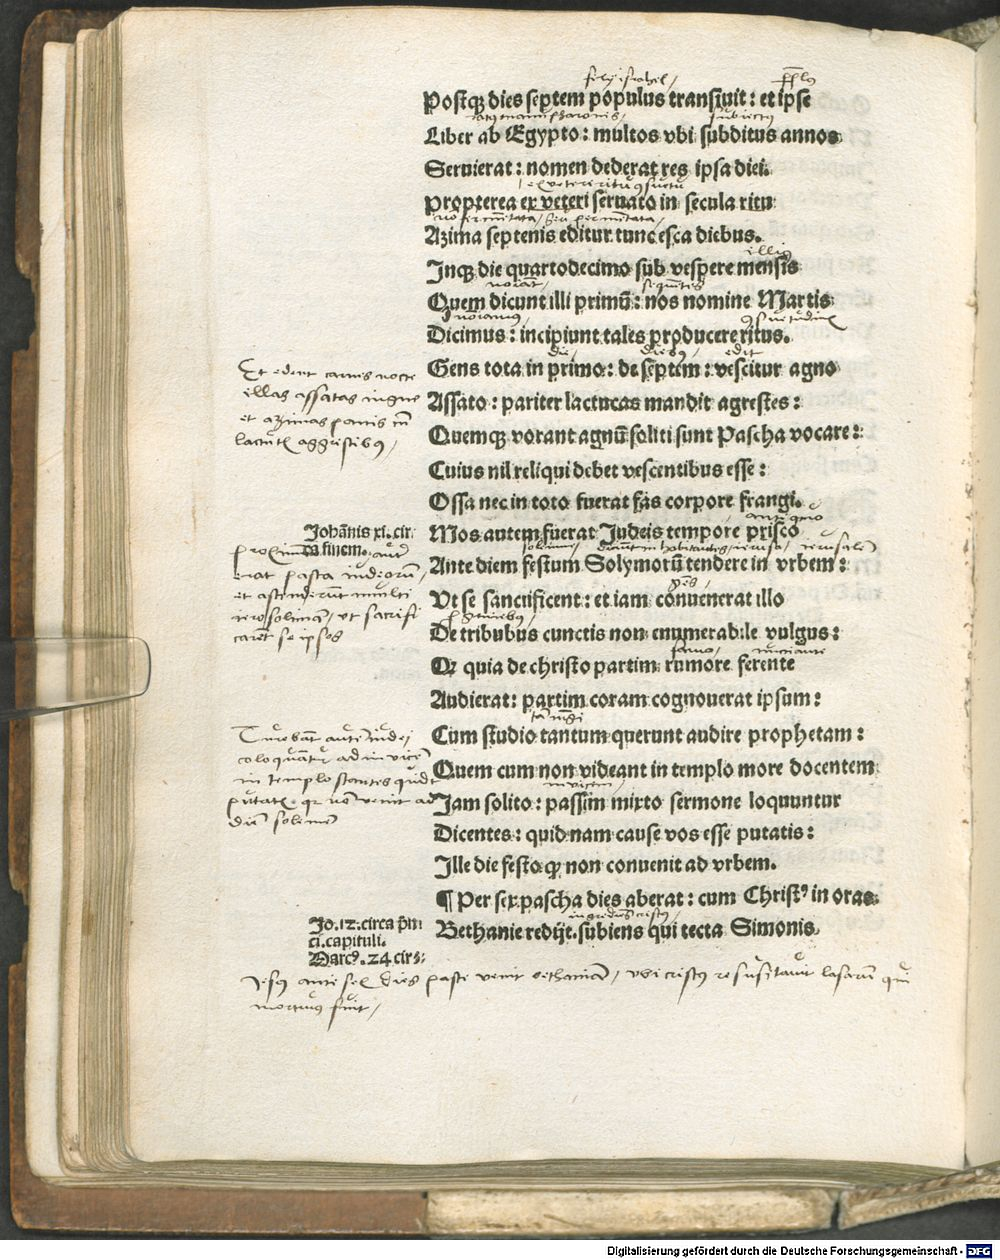 filij israhel /
Postqʒ dies septem populus transiuit : et ipse
subiectus
Liber ab Egypto : multos vbi subditus annos
Seruierat : nomen dederat res ipsa diei.
Propterea ex veteri seruato in secula ritu
Azima septenis editur tunc esca diebus.
illius
Inqʒ die quartodecimo sub vespere mensis
Quem dicunt illi primū : nos nomine Martis
Dicimus : incipiunt tales producere ritus.
die / diebus / edit
Gens tota in primo : de septem : vescitur agno
Et edent carnis nocte
illas assatas in igne
Assato : pariter lactucas mandit agrestes :
et azimos panis cū
Quemqʒ vorant agnū soliti sunt Pascha vocare :
Cuius nil reliqui debet vescentibus esse :
Ossa nec in toto fuerat fas corpore frangi.
antiquo
Johānis xi. cir-
ca finem.
Mos autem fuerat Judeis tempore prisco
Ante diem festum Solymorū tendere in vrbem :
erat pasca iudeorū /
et ascenderūt multi
ierosolimā / ut sacrifi
carēt se ipsos
Vt se sanctificent : et iam conuenerat illo
De tribubus cunctis non enumerabile vulgus :
fama / nunciante
Qr quia de christo partim rumore ferente
Audierat : partim coram cognouerat ipsum :
Cum studio tantum querunt audire prophetam :
Quem cum non videant in templo more docentem
in templo stantes quid
putatis qr nō venit ad
diē
invicem
Jam solito : passim mixto sermone loquuntur
Dicentes : quid nam cause vos esse putatis :
Ille die festo qp non conuenit ad vrbem.
¶ Per sex pascha dies aberat : cum Christꝰ in oras
Jo. 12. circa prī
ci. capituli.
Marcꝰ. 24 circ :
Bethanie redijt. subiens qui tecta Simonis
Jesus ante sex dies pasce venit bethaniā / vbi cristus resusitauit lasarū qui
mortuus fuit /
Digitalisierung gefördert durch die Deutsche Forschungsgemeinschaft - DFG